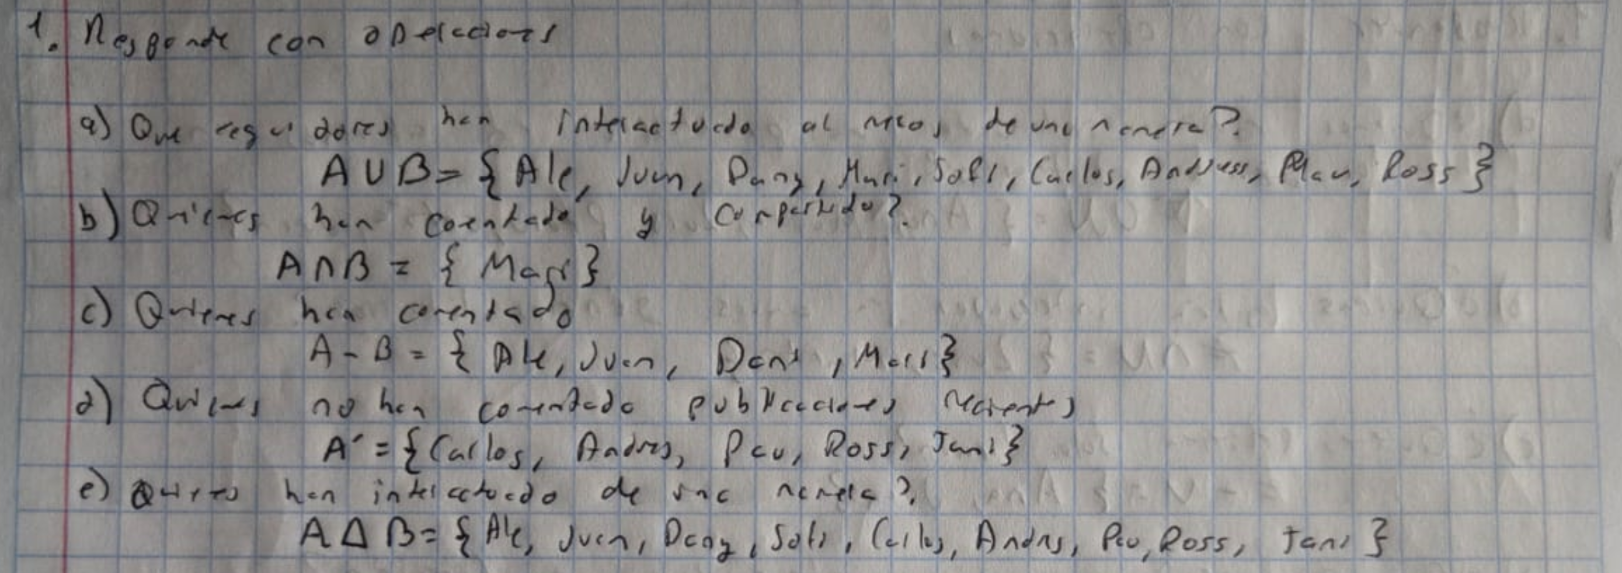 1. Responde con operaciones
a) Que seguidores han interactuado al menos de una manera?
A U B = { Ale, Juan, Dany, Mari, Sofi, Carlos, Andress, Pau, Ross }
b) Quienes han comentado y compartido?
A ∩ B = { Mari }
c) Quienes han comentado
A - B = { Ale, Juan, Dani, Mari }
d) Quienes no han comentado publicaciones recientes
A' = { Carlos, Andres, Pau, Ross, Jani }
e) Quienes han interactuado de una manera?
A Δ B = { Ale, Juan, Dany, Sofi, Carlos, Andres, Pau, Ross, Jani }